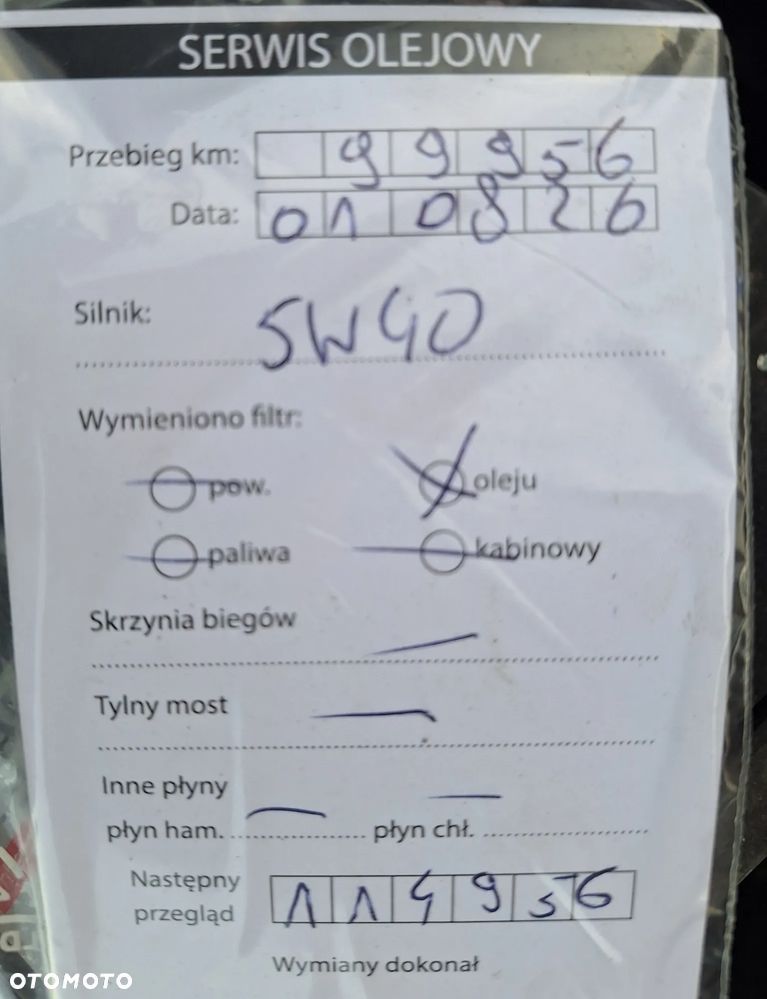 SERWIS OLEJOWY
Przebieg km: 99956
Data: 010826
Silnik: 5W40
Wymieniono filtr:
pow. oleju
paliwa kabinowy
Skrzynia biegów
Tylny most
Inne płyny
płyn ham. płyn chł.
Następny
przegląd 114956
Wymiany dokonał
OTOMOTO